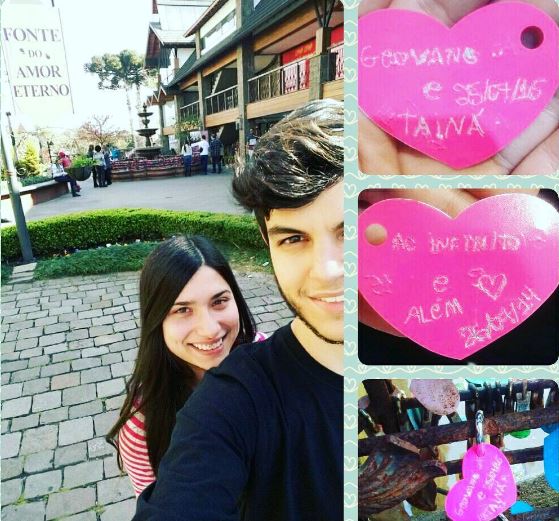 FONTE
DO
AMOR
ETERNO
GEOVANO
e 25/07/15
TAINÁ
AO INFINITO
e
ALÉM
GEOVANO
e
TAINÁ